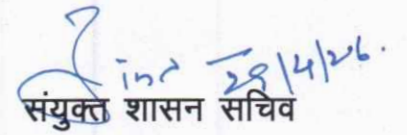 29/4/26.
संयुक्त शासन सचिव